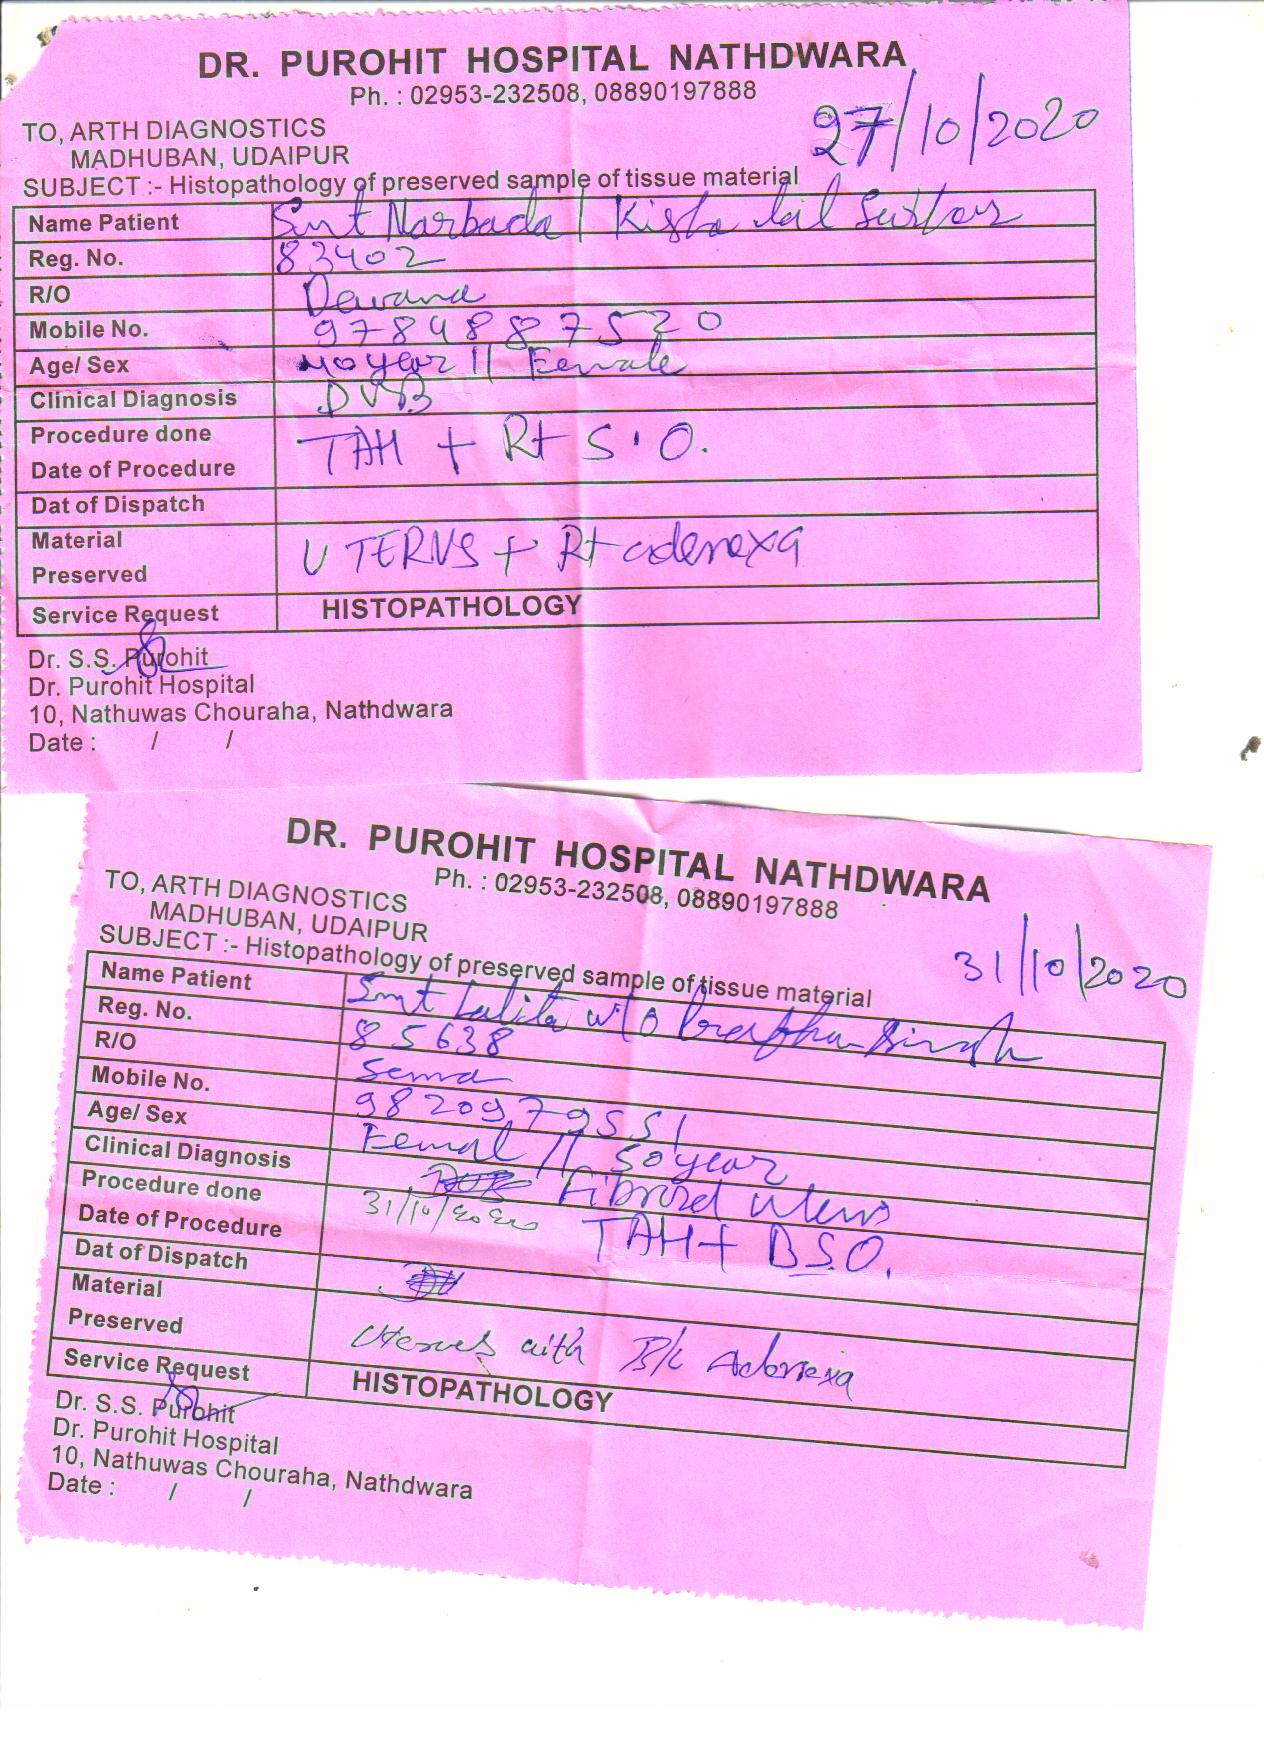 DR. PUROHIT HOSPITAL NATHDWARA
Ph. : 02953-232508, 08890197888
27/10/2020
TO, ARTH DIAGNOSTICS
MADHUBAN, UDAIPUR
SUBJECT :- Histopathology of preserved sample of tissue material
Name Patient Smt Narbada / Kishn lal Suthar
Reg. No. 83402
R/O Dewana
Mobile No. 9784887520
Age/ Sex 40 year // Female
Clinical Diagnosis DUB
Procedure done TAH + Rt S.O.
Date of Procedure
Dat of Dispatch
Material UTERUS + Rt adenexa
Preserved
Service Request HISTOPATHOLOGY
Dr. S.S. Purohit
Dr. Purohit Hospital
10, Nathuwas Chouraha, Nathdwara
Date : / /
DR. PUROHIT HOSPITAL NATHDWARA
Ph. : 02953-232508, 08890197888
TO, ARTH DIAGNOSTICS
MADHUBAN, UDAIPUR
31/10/2020
SUBJECT :- Histopathology of preserved sample of tissue material
Name Patient Smt Lalita w/o Prabhu Singh
Reg. No. 85638
R/O Sema
Mobile No. 9820979551
Age/ Sex Femal // 50 year
Clinical Diagnosis Fibroid uterus
Procedure done TAH + BSO.
Date of Procedure 31/10/2020
Dat of Dispatch
Material
Preserved Uterus with B/L Adenexa
Service Request HISTOPATHOLOGY
Dr. S.S. Purohit
Dr. Purohit Hospital
10, Nathuwas Chouraha, Nathdwara
Date : / /